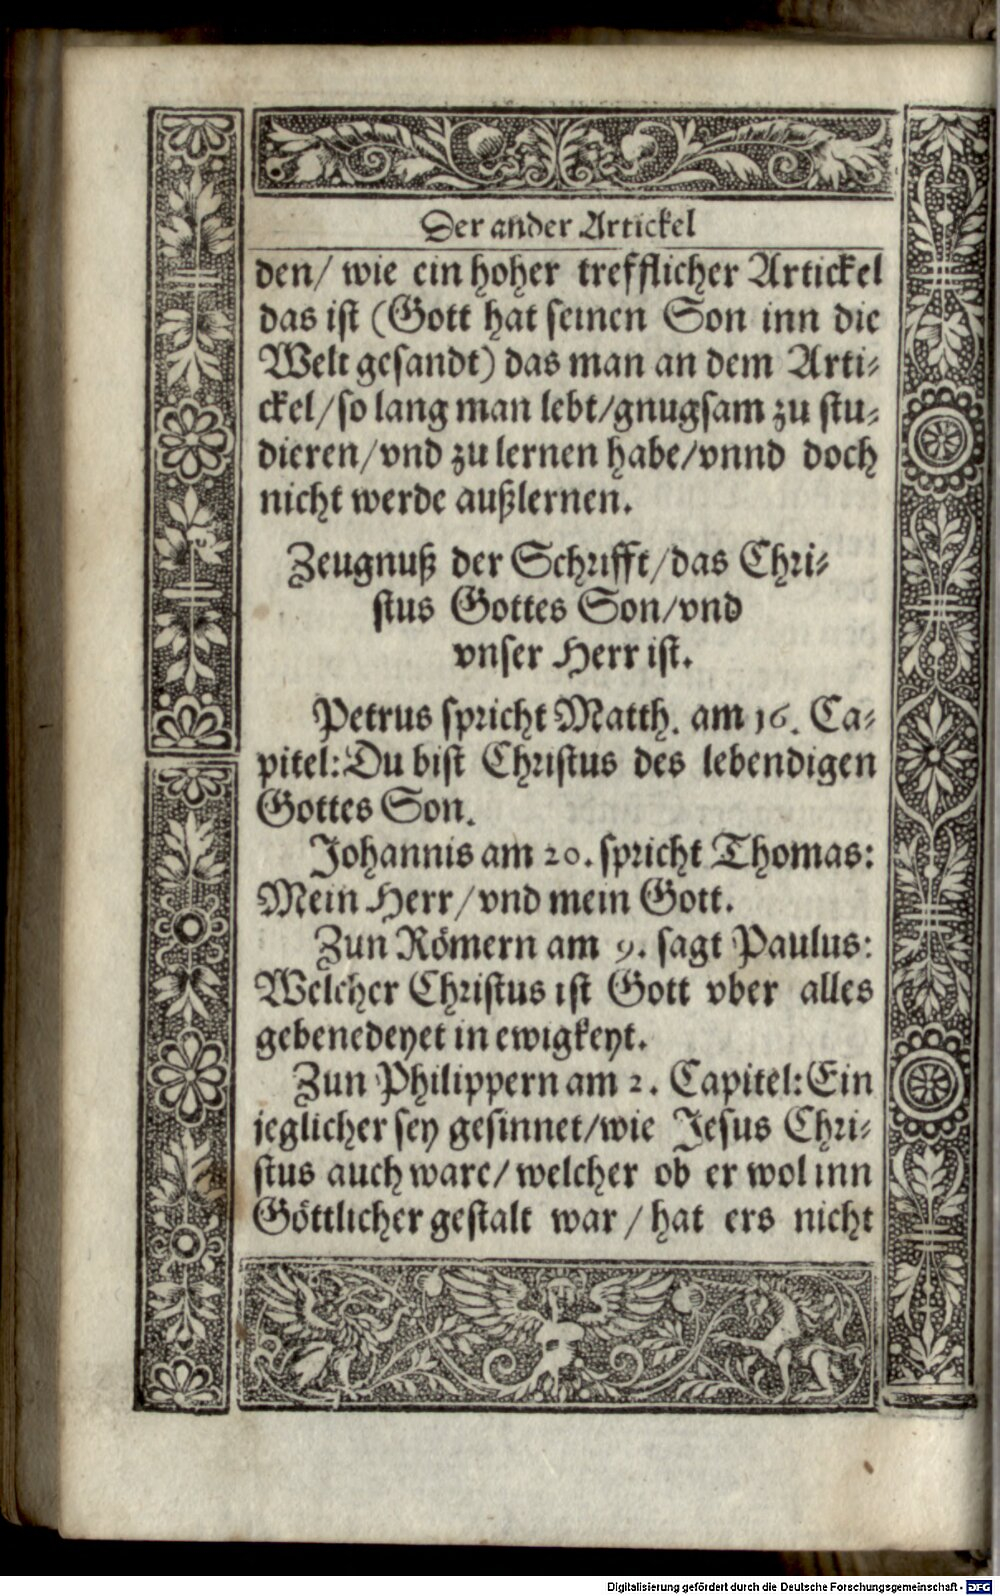 Der ander Artickel
den/ wie ein hoher trefflicher Artickel
das ist (Gott hat seinen Son inn die
Welt gesandt) das man an dem Arti-
ckel/ so lang man lebt/ gnugsam zu stu-
dieren/ vnd zu lernen habe/ vnnd doch
nicht werde außlernen.
Zeugnuß der Schrifft/ das Chri-
stus Gottes Son/ vnd
vnser Herr ist.
Petrus spricht Matth. am 16. Ca-
pitel: Du bist Christus des lebendigen
Gottes Son.
Johannis am 20. spricht Thomas:
Mein Herr/ vnd mein Gott.
Zun Römern am 9. sagt Paulus:
Welcher Christus ist Gott vber alles
gebenedeyet in ewigkeyt.
Zun Philippern am 2. Capitel: Ein
jeglicher sey gesinnet/ wie Jesus Chri-
stus auch ware/ welcher ob er wol inn
Göttlicher gestalt war/ hat ers nicht
Digitalisierung gefördert durch die Deutsche Forschungsgemeinschaft - DFG